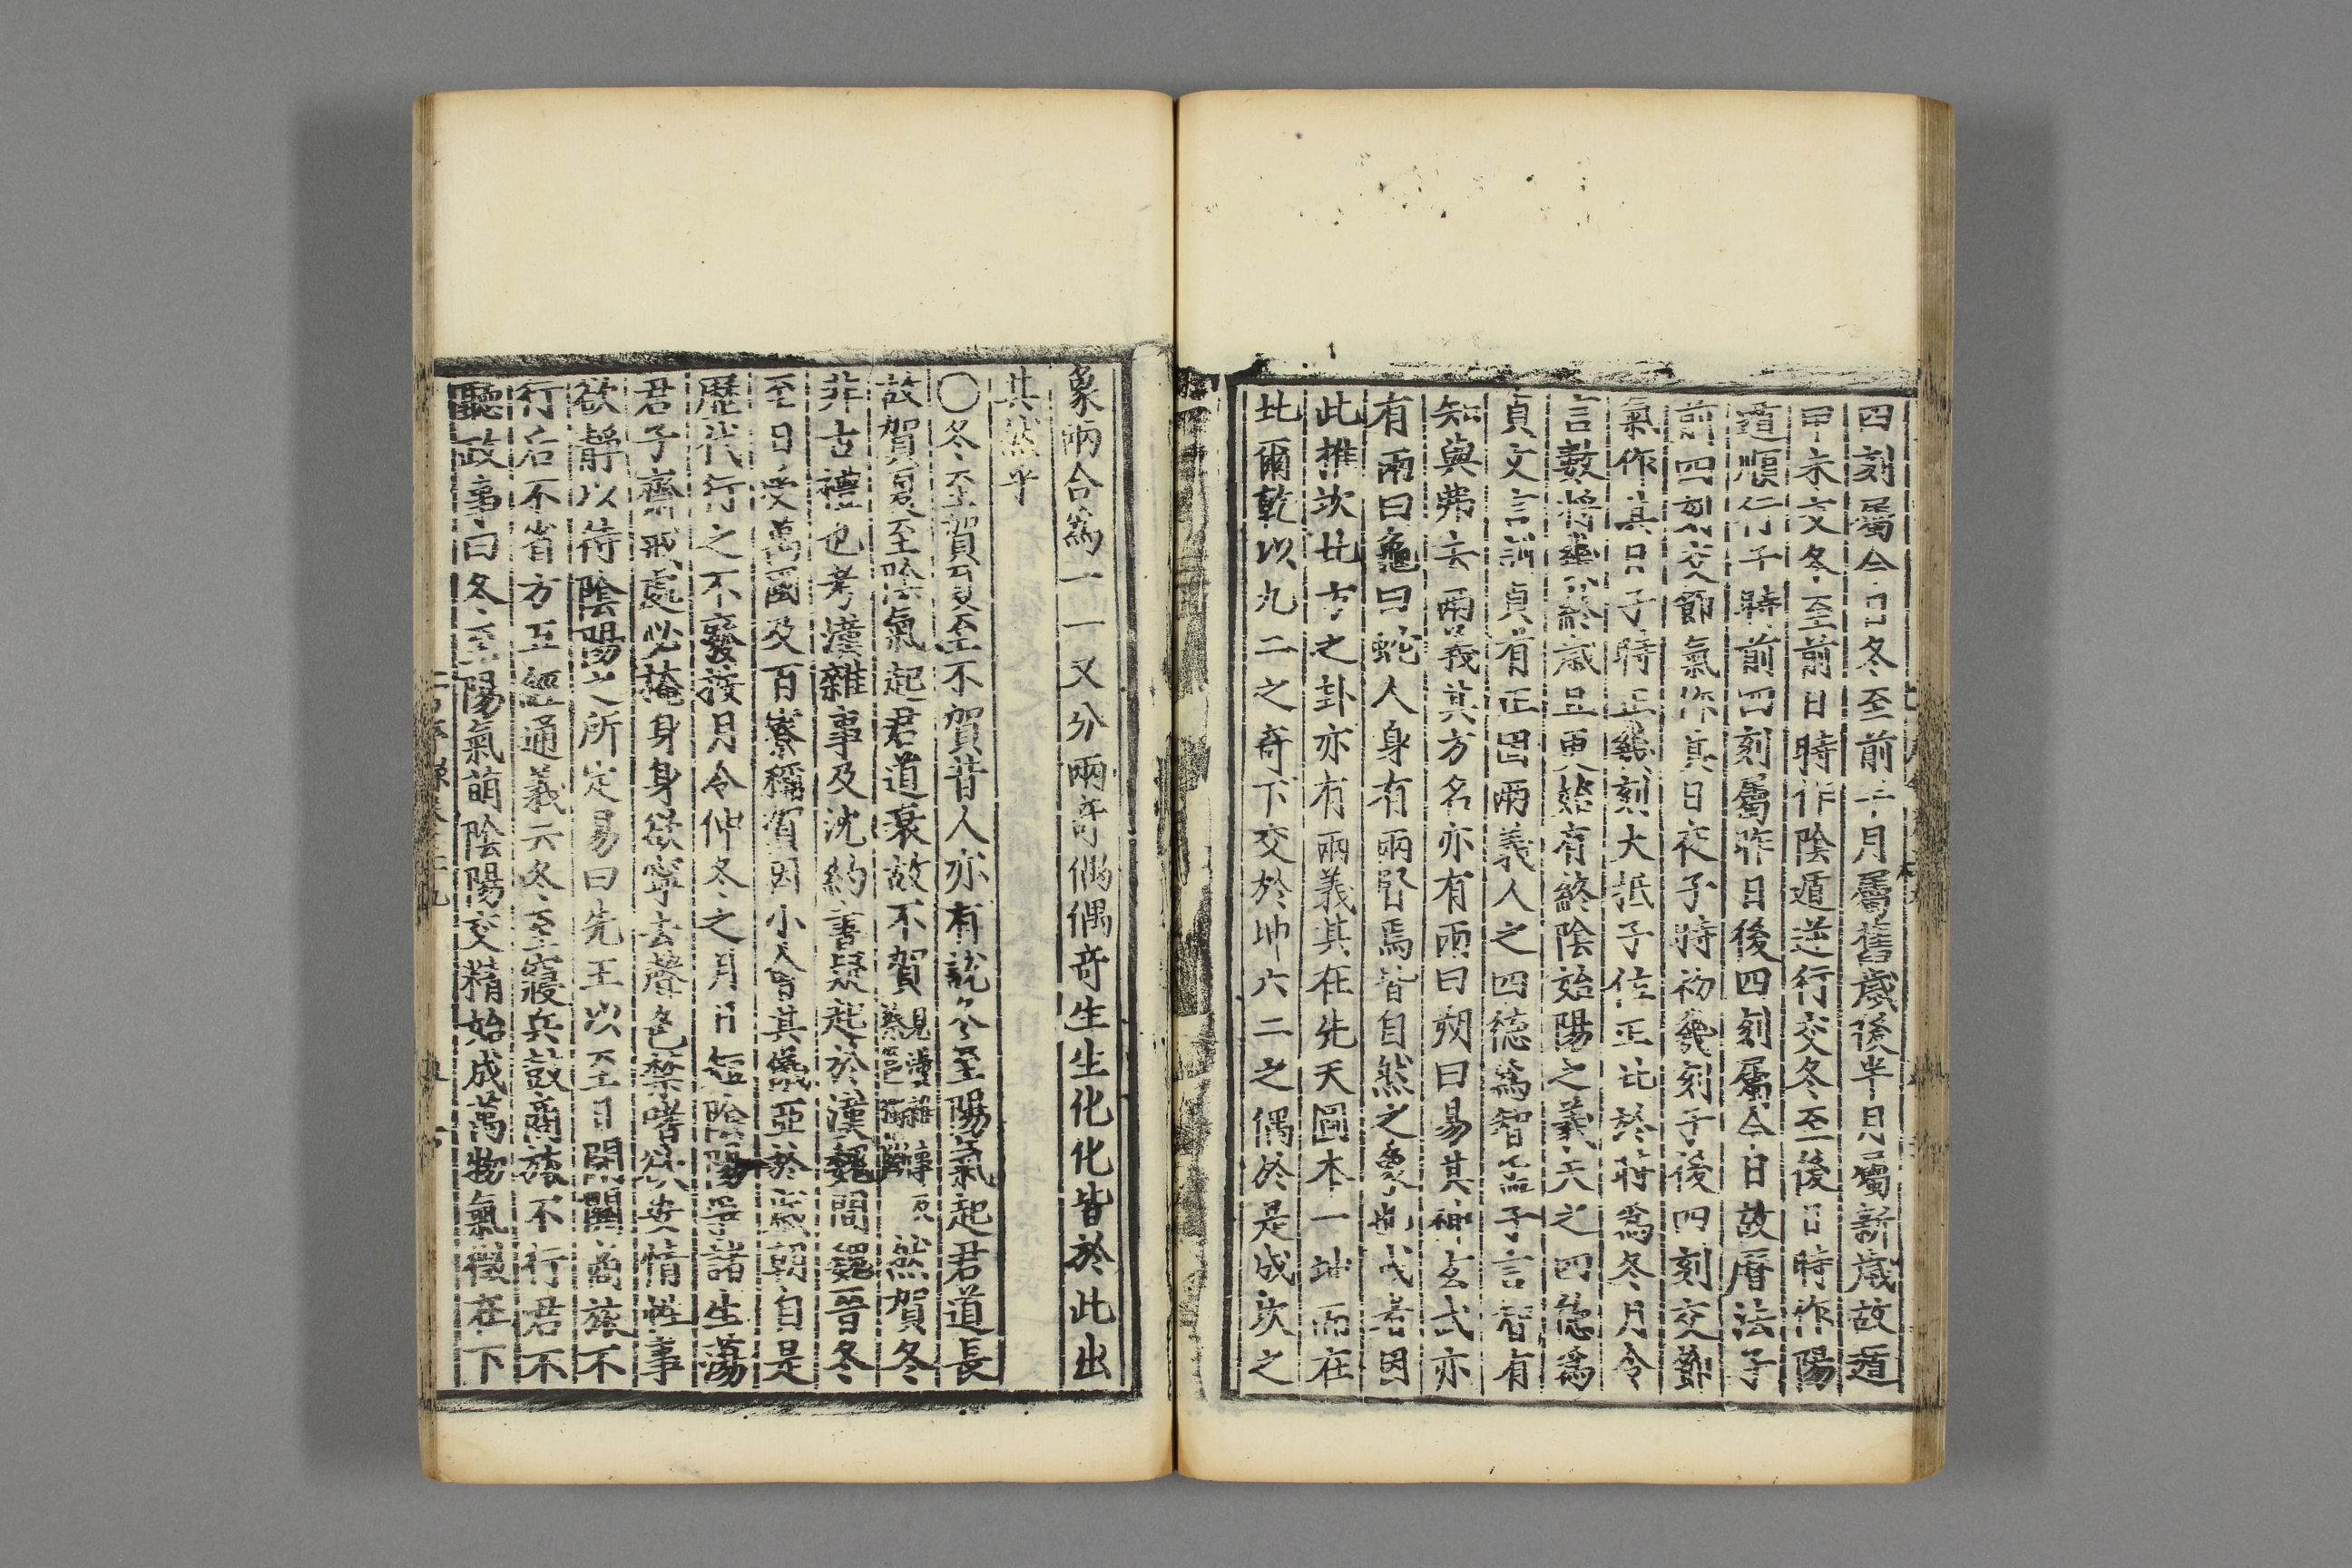 四刻屬今日冬至前半月屬舊歲後半月屬新歲故遁
甲未交冬至前日時作陰遁逆行交冬至後日時作陽
遁順行子時前四刻屬昨日後四刻屬今日故曆法子
前四刻交節氣作其日夜子時初幾刻子後四刻交節
氣作其日子時正幾刻大抵子位正北於時為冬月令
言數將幾終歲且更始有終陰始陽之義天之四德為
貞文言訓貞有正固兩義人之四德為智孟子言智有
知與弗去兩義其方名亦有兩曰朔曰易其神玄武亦
有兩曰龜曰蛇人身有兩腎焉皆自然之象也或者因
此推坎北方之卦亦有兩義其在先天圖本一坤而在
北爾乾以九二之奇下交於坤六二之偶於是成坎之
象兩合為一一又分兩奇偶偶奇生生化化皆於此出
其然乎
〇冬至賀夏至不賀昔人亦有說冬至陽氣起君道長
故賀夏至陰氣起君道衰故不賀見漢雜事蔡邕獨斷 然賀冬
非古禮也考漢雜事及沈約書疑起於漢魏間魏晉冬
至日受萬國及百寮稱賀因小會其儀亞於歲朝自是
歷代行之不廢按月令仲冬之月日短陰陽爭諸生蕩
君子齋戒處必掩身身欲寧去聲色禁嗜欲安情性事
欲靜以待陰陽之所定易曰先王以至日閉關商旅不
行后不省方五經通義云冬至寢兵鼓商旅不行君不
聽政事曰冬至陽氣萌陰陽交精始成萬物氣微在下